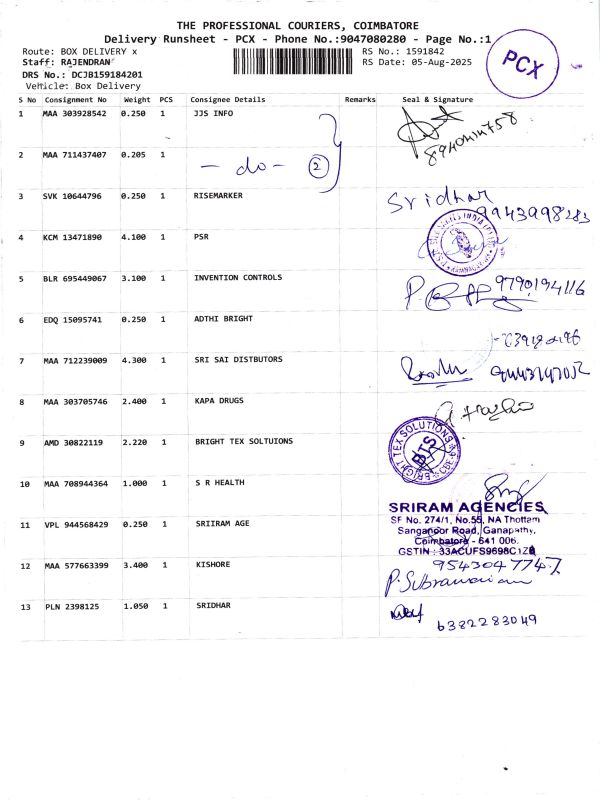 THE PROFESSIONAL COURIERS, COIMBATORE
Delivery Runsheet - PCX - Phone No.:9047080280 - Page No.:1
Route: BOX DELIVERY x
RS No.: 1591842
Staff: RAJENDRAN
RS Date: 05-Aug-2025
DRS No.: DCJB159184201
Vehicle: Box Delivery
PCX
S No Consignment No Weight PCS Consignee Details Remarks Seal & Signature
1 MAA 303928542 0.250 1 JJS INFO
2 MAA 711437407 0.205 1
- do - 2
3 SVK 10644796 0.250 1 RISEMARKER Sridhar
9943998283
4 KCM 13471890 4.100 1 PSR
5 BLR 695449067 3.100 1 INVENTION CONTROLS 9790194116
6 EDQ 15095741 0.250 1 ADTHI BRIGHT
7 MAA 712239009 4.300 1 SRI SAI DISTBUTORS
8 MAA 303705746 2.400 1 KAPA DRUGS
9 AMD 30822119 2.220 1 BRIGHT TEX SOLTUIONS
BRIGHT TEX SOLUTIONS
BTS
CBE
10 MAA 708944364 1.000 1 S R HEALTH
SRIRAM AGENCIES
SF No. 274/1, No.55, NA Thottam
Sanganoor Road, Ganapathy,
Coimbatore - 641 006.
GSTIN : 33ACUFS9698C1Z
11 VPL 944568429 0.250 1 SRIIRAM AGE
12 MAA 577663399 3.400 1 KISHORE 9543047747
P. Subramanian
13 PLN 2398125 1.050 1 SRIDHAR
6382283049